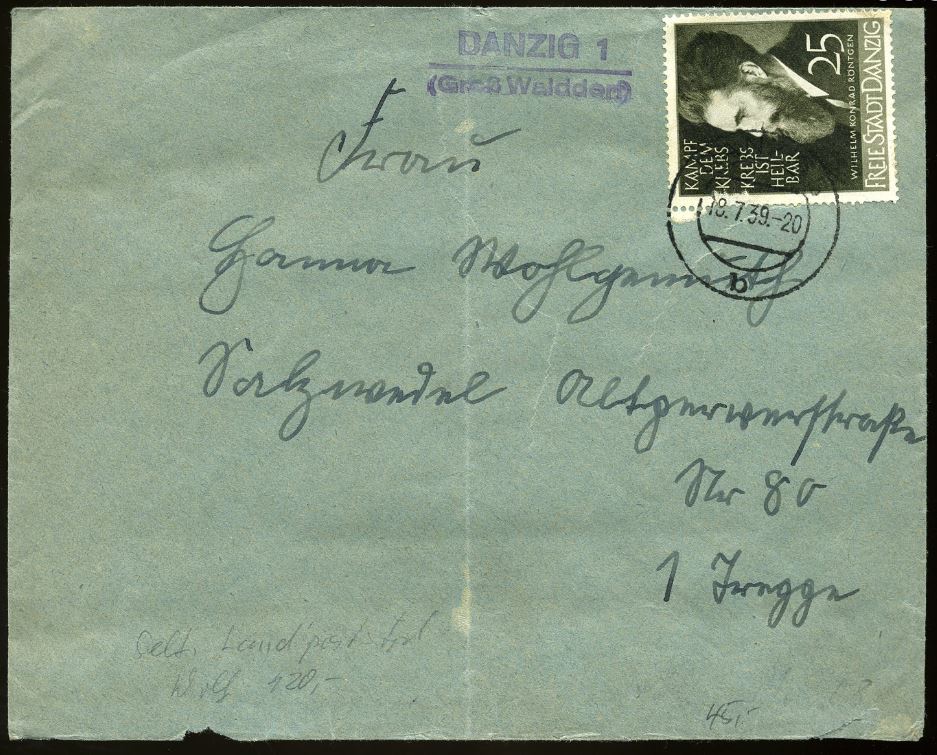 DANZIG 1
(Groß Walddorf)
25
WILHELM KONRAD RÖNTGEN
FREIE STADT DANZIG
KAMPF
DEM
KREBS
KREBS
IST
HEIL-
BAR
18.7.39.-20
a
Frau
Hanna Wohlgemuth
Salzwedel Altperwerstraße
Nr 80
1 Tregge
Selt. Landpost
120,-
45,-